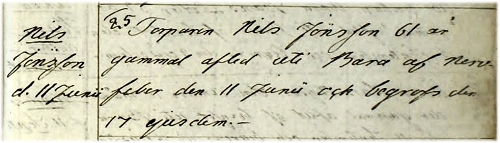 Nils
Jönsson
d. 11 Junii
25 Torparen Nils Jönsson 61 år
gammal afled uti Bara af nerv-
feber den 11 Junii och begrofs den
17 ejusdem.—